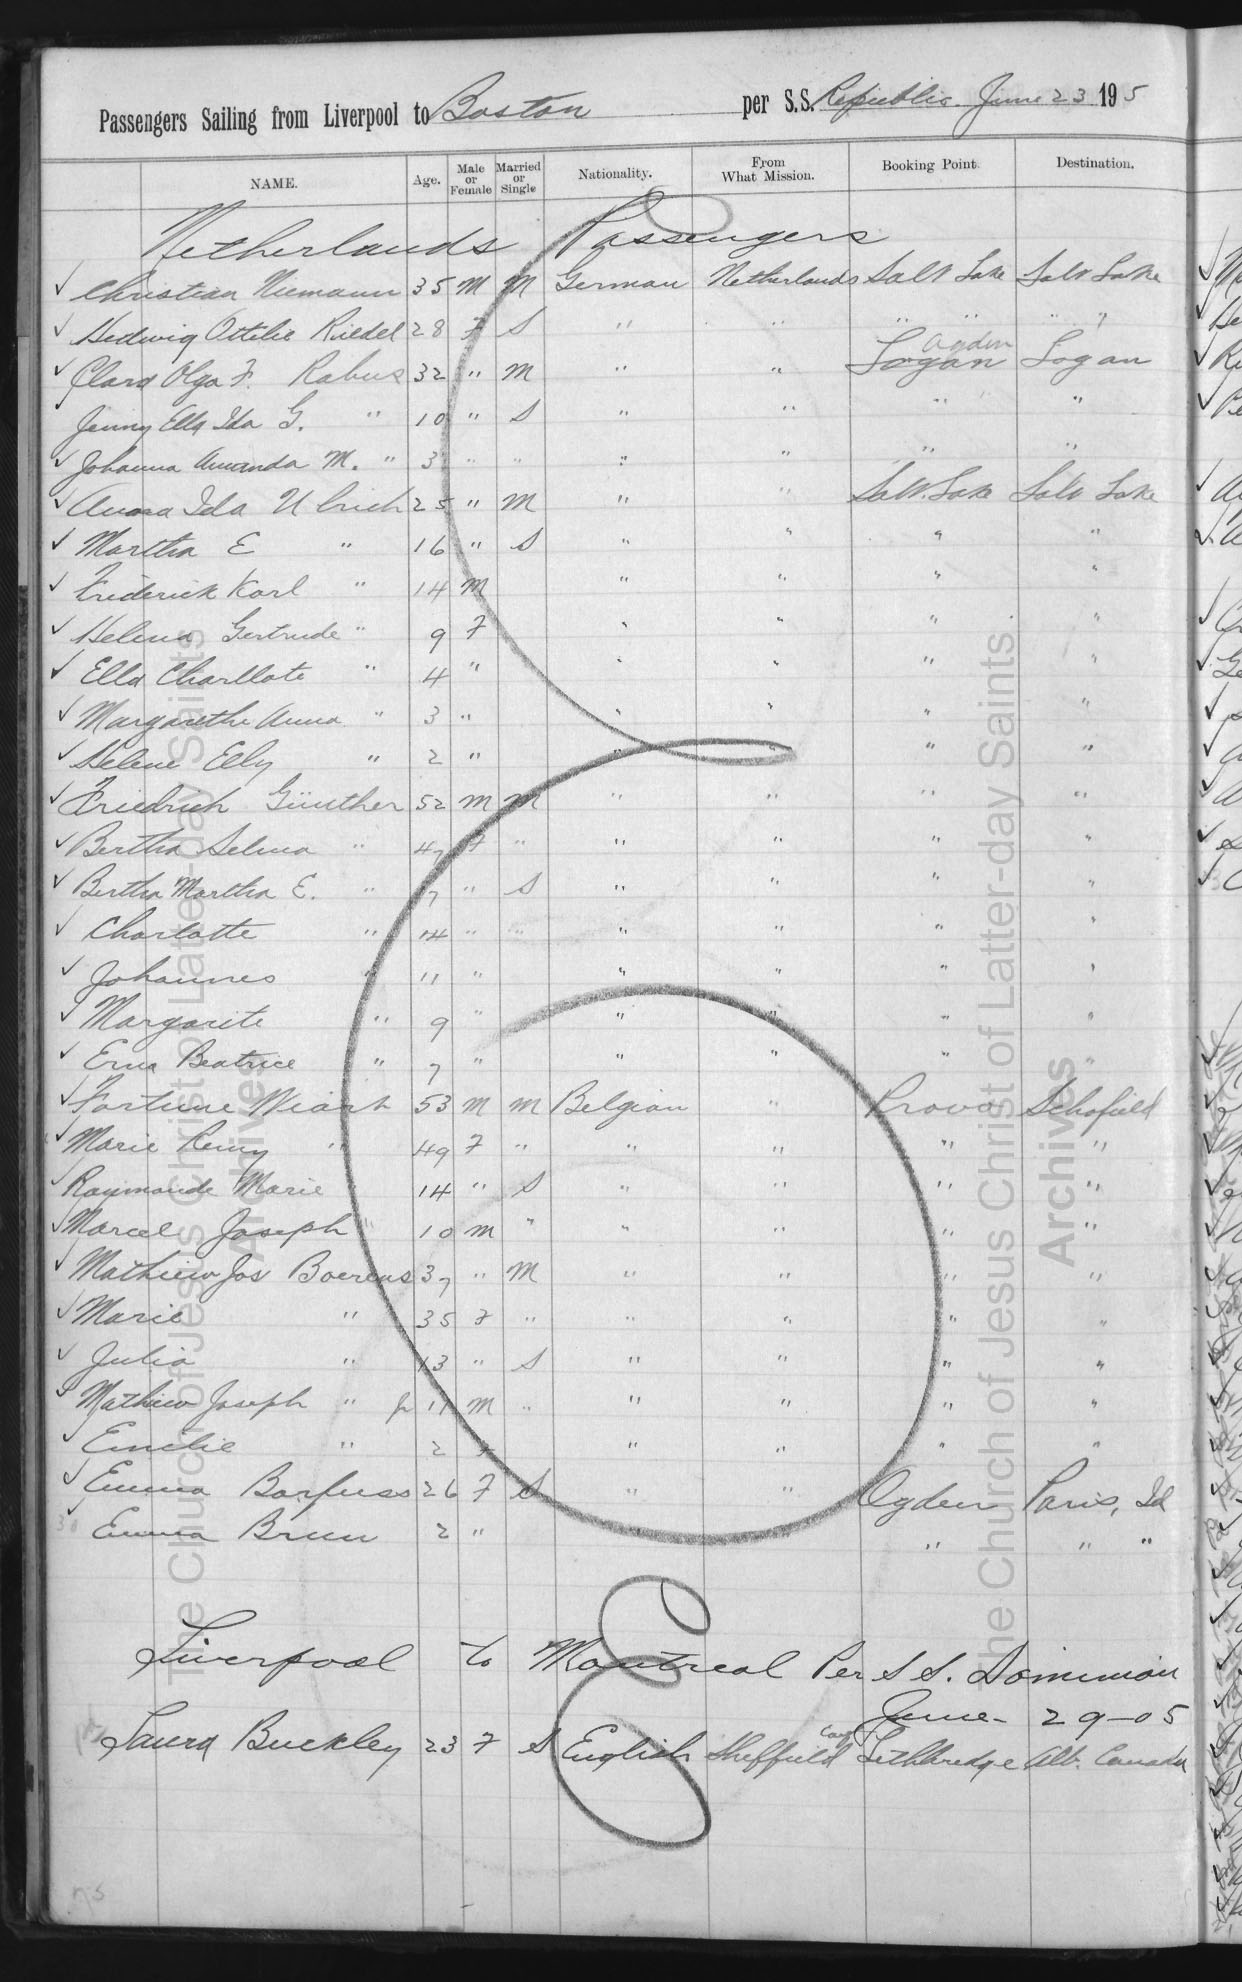 Passengers Sailing from Liverpool to Boston per S.S. Republic June 23 1905
NAME. Age. Male or Female Married or Single Nationality. From What Mission. Booking Point. Destination.
Netherlands Passengers
✓ Christian Niemann 35 M M German Netherlands Salt Lake Salt Lake
✓ Hedwig Ottilie Riedel 28 F S " " " " " "
Ogden
✓ Clara Olga F. Rabus 32 " M " " Logan Logan
Jenny Ella Ida G. " 10 " S " " " "
✓ Johanna Amanda M. " 3 " " " " " "
✓ Anna Ida Ulbrich 25 " M " " Salt Lake Salt Lake
✓ Martha E " 16 " S " " " "
✓ Friderick Karl " 14 M " " " "
✓ Helena Gertrude " 9 F " " " "
✓ Ella Charllote " 4 " " " " "
✓ Margarethe Anna " 3 " " " " "
✓ Helene Elly " 2 " " " " "
✓ Friedrich Günther 52 M M " " " "
✓ Bertha Selma " 47 F " " " " "
✓ Bertha Martha E. " 7 " S " " " "
✓ Charlotte " 14 " " " " " "
✓ Johannes " 11 " " " " "
✓ Margarite " 9 " " " " "
✓ Erna Beatrice " 7 " " " " "
✓ Fortune 53 M M Belgian " Provo Schofield
✓ Marie Remy " 49 F " " " " "
Raymonde Marie 14 " S " " " "
✓ Marcel Joseph " 10 M " " " " "
✓ Mathieu Jos Boerens 37 " M " " " "
✓ Marie " 35 F " " " " "
✓ Julia " 13 " S " " " "
✓ Mathieu Joseph " 11 M " " " " "
✓ Emilie " 2 F " " " "
✓ Emma Barfuss 26 F S " " Ogden Paris, Id
Emma Brun 2 " " " " " "
Liverpool to Montreal Per S S. Dominion
June - 29-05
Laura Buckley 23 F S English Sheffield Lethbredge Alb. Canada
75
The Church of Jesus Christ of Latter-day Saints
Archives
The Church of Jesus Christ of Latter-day Saints
Archives